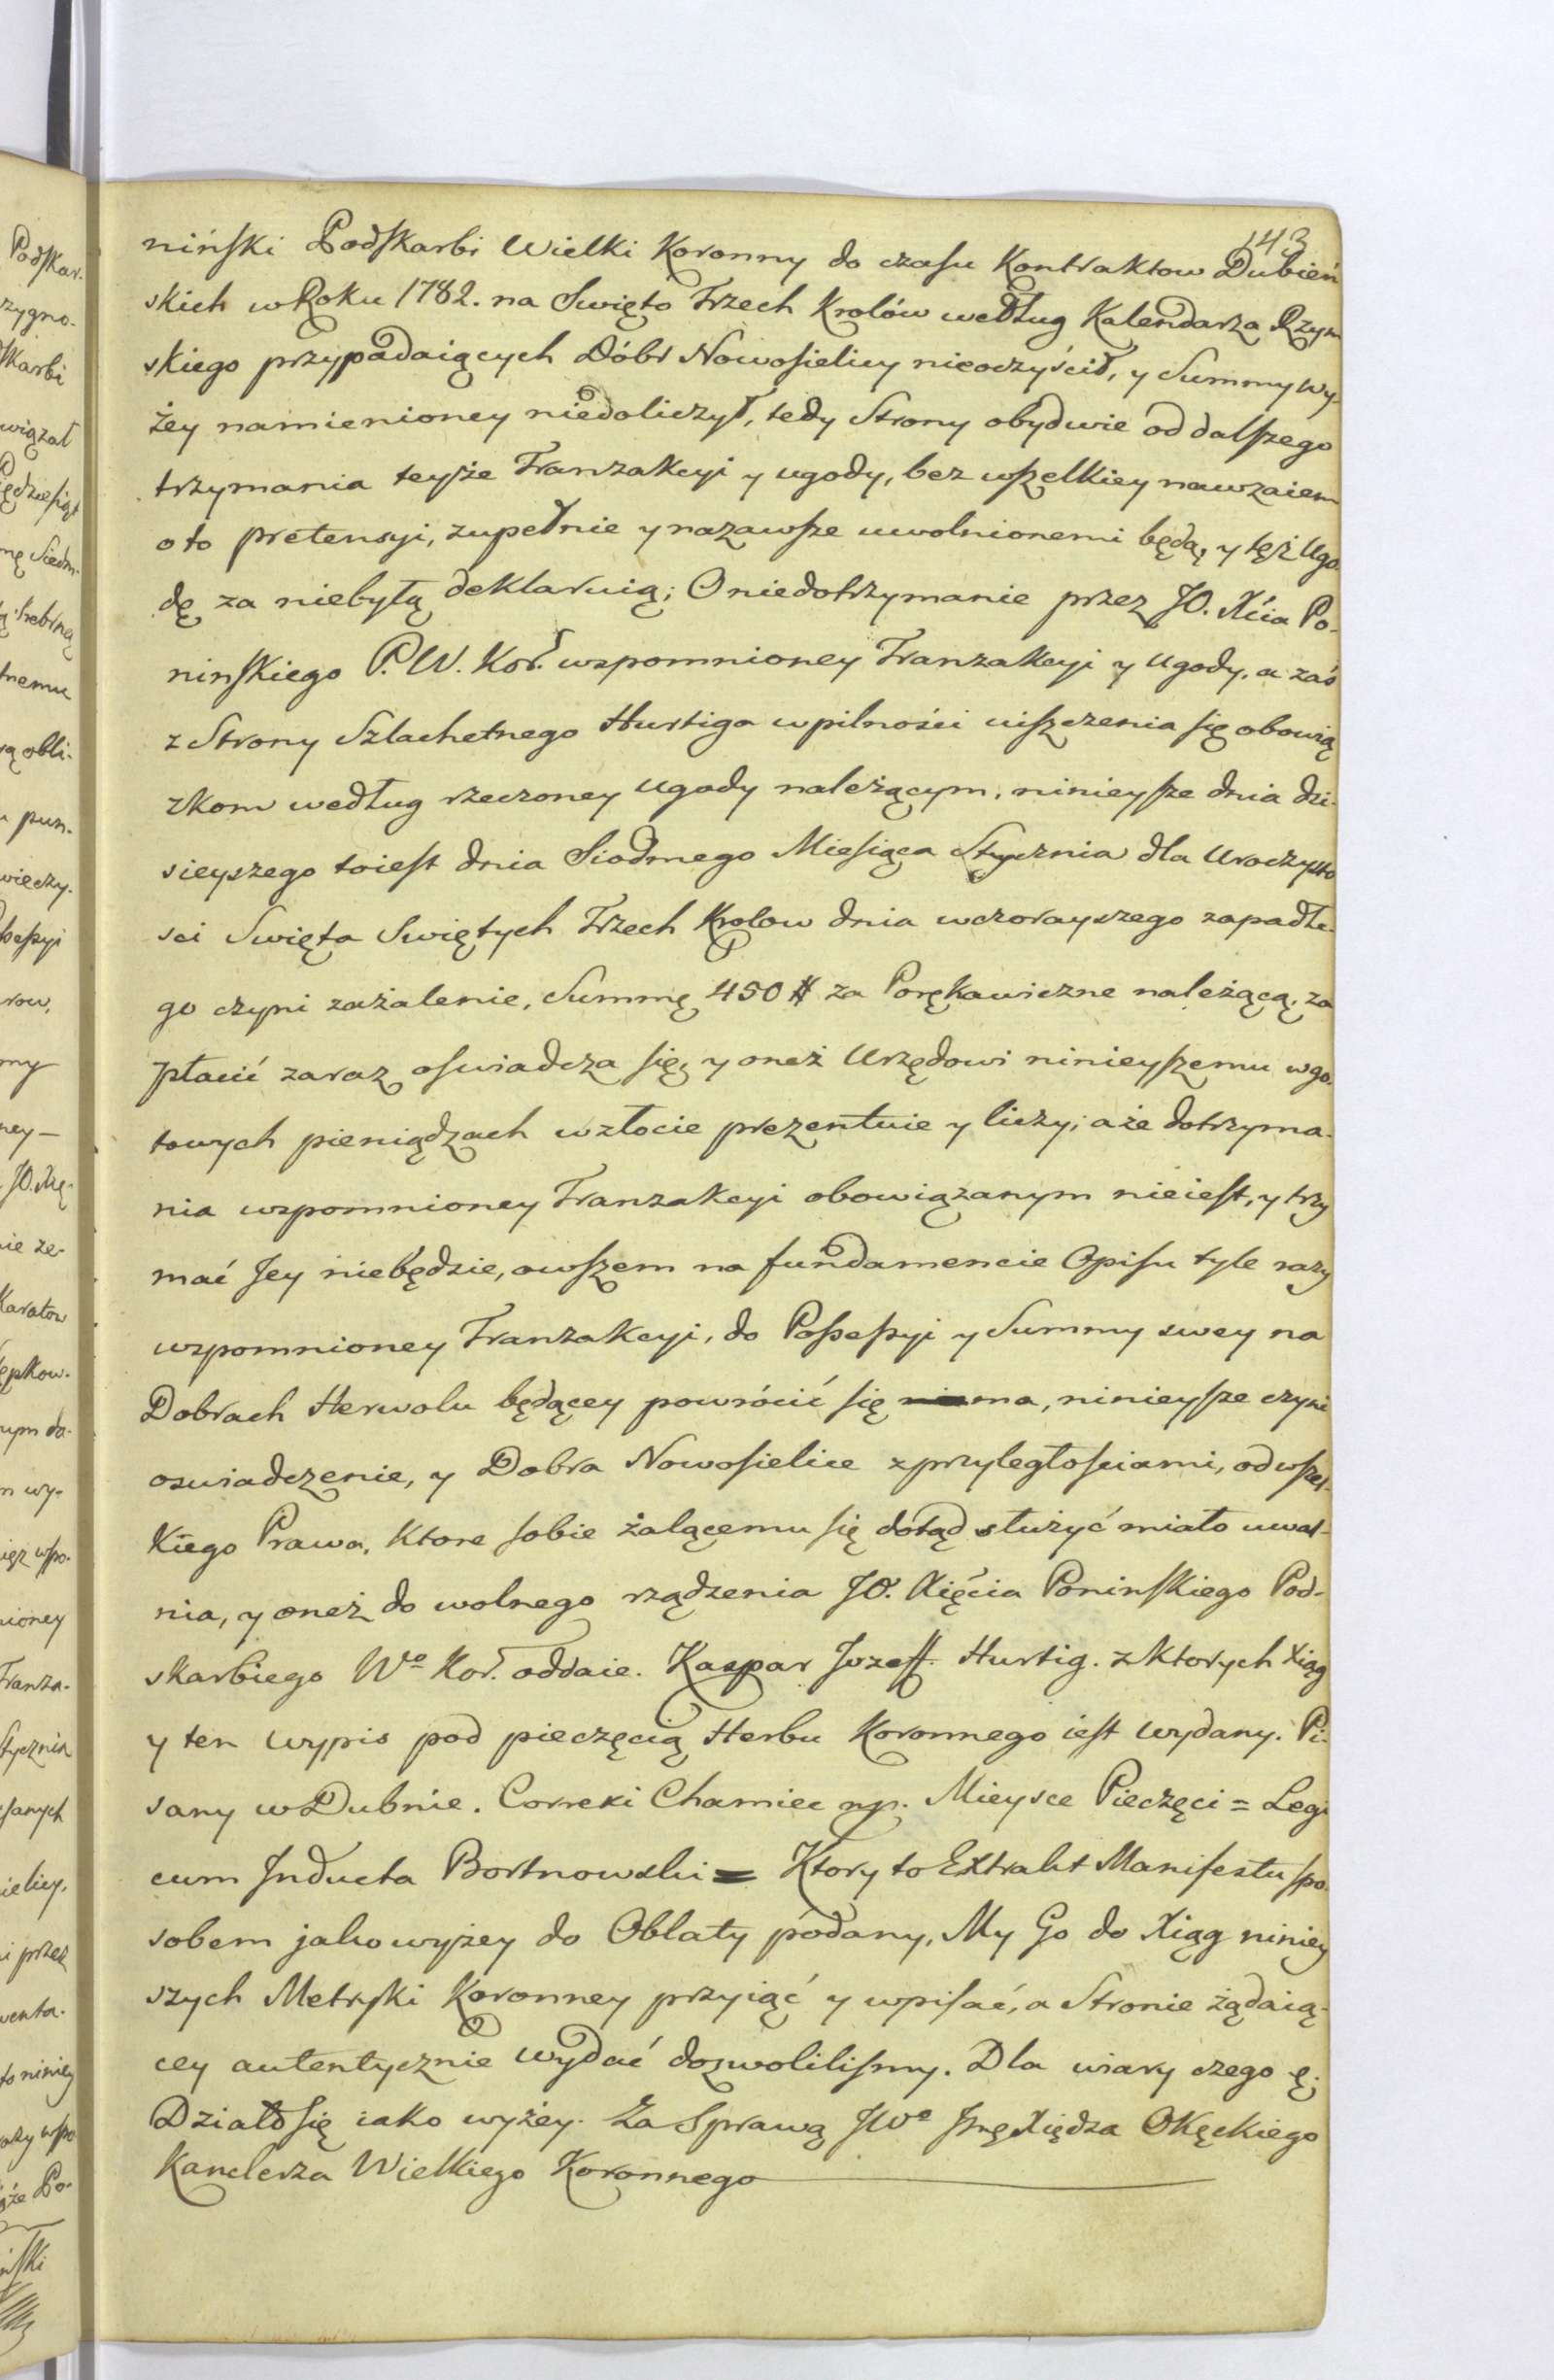 143
niński Podskarbi Wielki Koronny do czasu Kontraktow Dubień
skich w Roku 1782. na Swięto Trzech Krolów według Kalendarza Rzym
skiego przypadaiących Dóbr Nowosielicy nieoczyścił, y Summy wy-
żey namienioney niedoliczył, tedy Strony obydwie od dalszego
trzymania teyże Tranzakcyi y ugody, bez wszelkiey nawzaiem
o to pretensyi, zupełnie y nazawsze uwolnionemi będą, y tęż Ugo
dę za niebyłą deklaruią; O niedotrzymanie przez JO. Xćia Po-
ninskiego P. W. Kor. wspomnioney Tranzakcyi y Ugody, a zaś
z Strony Szlachetnego Hurtiga w pilności uiszczenia się obowią
zkom według rzeczoney Ugody należącym, ninieysze dnia dzi-
sieyszego toiest dnia Siodmego Miesiąca Stycznia dla Uroczysto
sci Swięta Swiętych Trzech Krolow dnia wczorayszego zapadłe-
go czyni zażalenie, Summę 450 # za Porękawiczne należącą, za
płacić zaraz oswiadcza się, y oneż Urzędowi ninieyszemu w go-
towych pieniądzach w złocie prezentuie y liczy; a że dotrzyma-
nia wspomnioney Tranzakcyi obowiązanym nieiest, y trzy
mać Jey niebędzie, owszem na fundamencie Opisu tyle razy
wspomnioney Tranzakcyi, do Possessyi y Summy swey na
Dobrach Herwolu będącey powrócić się ma, ninieysze czyni
oswiadczenie, y Dobra Nowosielice z przyległosciami, od wszel-
kiego Prawa, ktore sobie żalącemu się dotąd służyć miało uwal-
nia, y oneż do wolnego rządzenia JO. Xięcia Poninskiego Pod-
skarbiego Wo Kor. oddaie. Kaspar Jozeff Hurtig. z ktorych Xiąg
y ten wypis pod pieczęcią Herbu Koronnego iest wydany. Pi-
sany w Dubnie. Correxi Chamiec mp. Mieysce Pieczęci = Legi
cum Inducta Bortnowski = Ktory to Extrakt Manifestu spo-
sobem jako wyżey do Oblaty podany, My Go do Xiąg niniey
szych Metryki Koronney przyiąć y wpisać, a Stronie żądaią-
cey autentycznie wydać dozwolilismy. Dla wiary czego ę.
Działo się iako wyżey. Za Sprawą JWo Jmę Xiędza Okęckiego
Kanclerza Wielkiego Koronnego